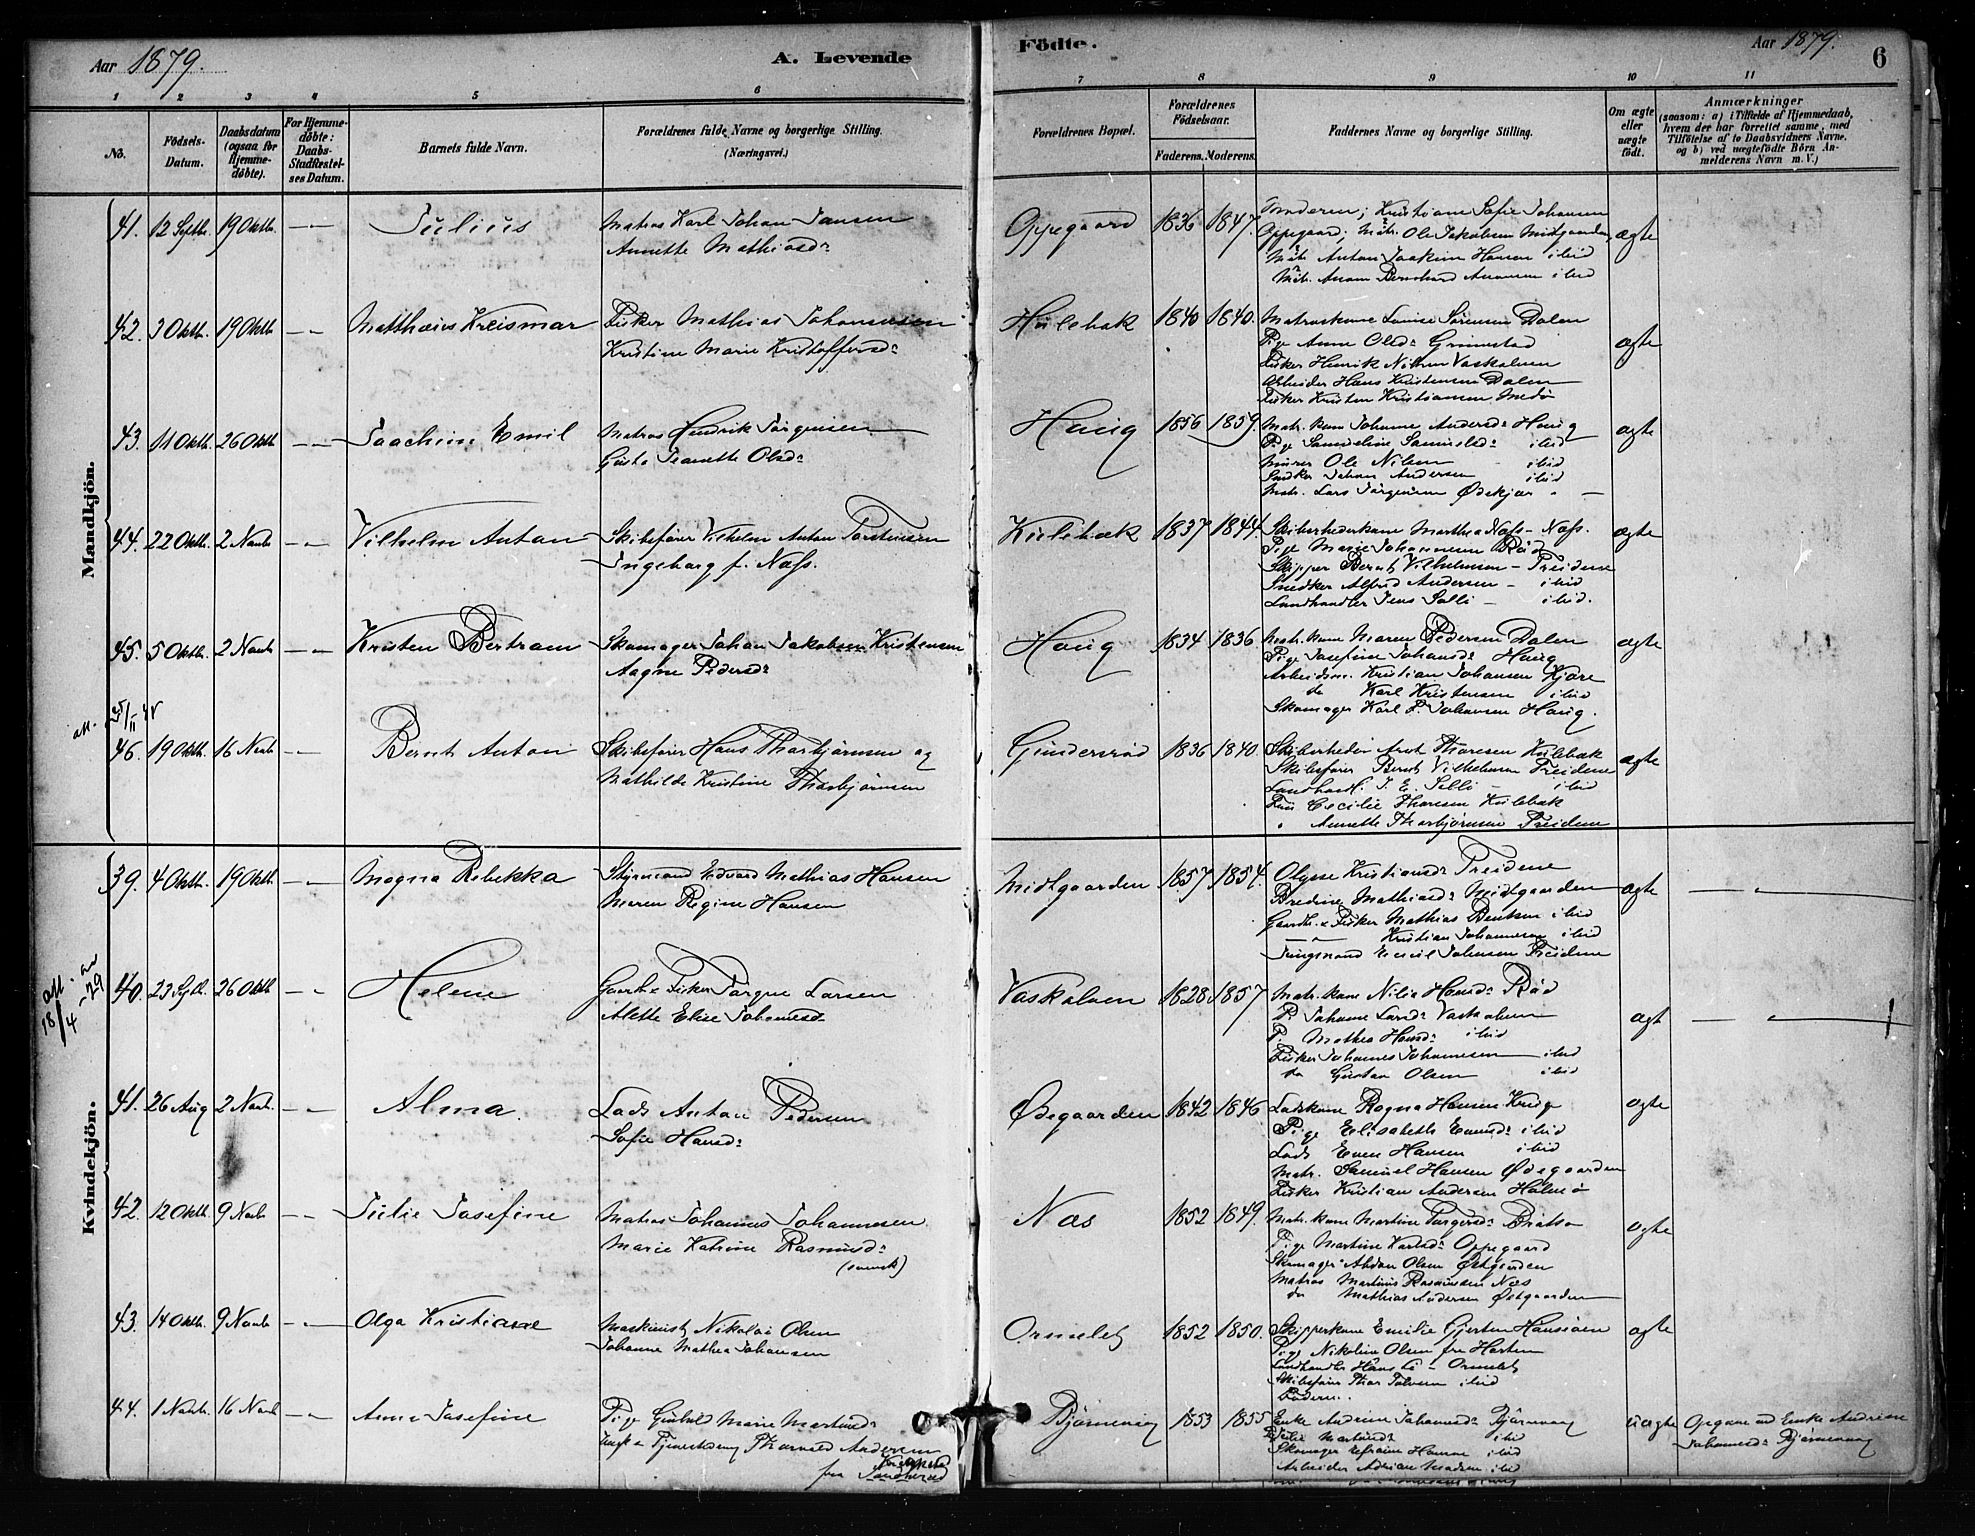 Aar 1879.
A. Levende
Födte.
Aar 1879.
6
1 2 3 4 5 6 7 8 9 10 11
No.
Födsels-Datum.
Daabsdatum (ogsaa for Hjemme-döbte).
For Hjemme-döbte: Daabs-Stadfæstel-ses Datum.
Barnets fulde Navn.
Forældrenes fulde Navne og borgerlige Stilling. (Næringsvei.)
Forældrenes Bopæl.
Forældrenes Födselsaar.
Faderens. Moderens.
Faddernes Navne og borgerlige Stilling.
Om ægte eller uægte födt.
Anmærkninger
(saasom: a) i Tilfælde af Hjemmedaab, hvem der har forrettet samme, med Tilföielse af to Daabsvidners Navne, og b) ved uægtefödte Börn An-melderens Navn m. V.)
Mandkjön.
41. 12 Septb. 19 Oktb. Julius
Matros Karl Johan Jansen
Annette Mathiasd:
Oppegaard 1836 1847.
Moderen; Kristiane Sofie Johansen
Oppegaard; Mtr. Ole Jakobsen Midtgaarden
Mtr. Anton Joakim Hansen ibid
ægte
42. 3 Oktb. 19 Oktb. Matthæus Kreismar
Fisker Mathias Johannesen
Kristine Marie Kristoffersd:
Hulebak 1840 1840.
Matroskone Lovise Sørensen Dalen
Pige Anne Olsd: Grimstad
Fisker Henrik Nilsen Vaskalven
Arbeider Hans Kristensen Dalen
Fisker Kristen Kristiansen Medø
ægte
43. 11 Oktb. 26 Oktb. Joachim Emil
Matros Hendrik Jørgensen
Gusta Jeanette Olsd:
Haug 1856 1859.
Matr. kone Johanne Andersd: Haug
Pige Samueline Samuelsd: ibid
Murer Ole Nilsen ibid
Snedker Johan Andersen ibid
Matr. Lars Jørgensen Ødekjær
ægte
44. 22 Oktb. 2 Novb. Vilhelm Anton
Skibsfører Vilhelm Anton Torstensen
Ingeborg f. Næss.
Hulebæk 1837 1844.
Skibsrhederkone Marthea Næs Næss.
Pige Marie Johannesen Rød
Skipper Bernt Vilhelmsen Treidene
Snedker Alfred Andersen ibid
Landhandler Jens Solli ibid.
ægte
45. 5 Oktb. 2 Novb. Kristen Bertram
Skomager Johan Jakobsen Kristensen
Aagine Pedersd:
Haug 1834 1836
Matr. kone Maren Pedersen Dalen
Pige Josefine Johansd: Haug
Arbeidsm. Kristian Johansen Kjære
do Karl Kristensen ibid
Skomager Karl P. Johansen Haug.
ægte
46. 19 Oktb. 16 Novb. Bernt Anton
Skibsfører Hans Thorbjørnsen og
Mathilde Kristine Thorbjørnsen
Gundersrød 1836 1840.
Skibsrheder Arnt Thoresen Hulebæk
Skibsfører Bernt Vilhelmsen Treidene
Landhandl. J. E. Solli ibid
Fru Cecilie Thoresen Hulebæk
" Annette Thorbjørnsen Treidene
ægte
Kvindekjön.
39. 4 Oktb. 19 Oktb. Magna Rebekka
Styrmand Edvard Mathias Hansen
Maren Regine Hansen
Midtgaarden 1857 1854.
Olysse Kristiansd: Treidene
Bredine Mathiasd: Midtgaarden
Gaardb. & Fisker Mathias Bentsen ibid
Kristian Johannesen ibid
Tungmand Emil Johansen Treidene
ægte
att. 18/4-29
40. 23 Septb. 26 Oktb. Helene
Gaardb & Fisker Torger Larsen
Alette Elise Johannesd
Vaskalven 1828 1857
Matr. kone Nilia Hansd: Rød
P. Johanne Larsd: Vaskalven
P. Mathea Hansd: ibid
Fisker Johannes Johannesen ibid
do Gustav Olsen ibid
ægt
41. 26 Aug 2 Novb. Alma.
Lods Anton Pedersen
Sofie Hansd:
Ødegaarden 1842 1846
Lodskone Ragna Hansen Kruge
Pige Elisabeth Evensd: ibid
Lods Even Hansen ibid
Matr. Samuel Hansen Ødegaarden
Fisker Kristian Andersen Holmø
ægte
42. 12 Oktb. 9 Novb. Julie Josefine
Matros Johannes Johannesen
Marie Katrine Rasmusd:
(svensk)
Næs 1852 1849.
Matr. kone Martine Torgersd: Bratsø
Pige Martine Karlsd: Oppegaard
Skomager Abdon Olsen Østgaarden
Matros Martinus Rasmussen Næs
do Mathias Andersen Østgaarden
ægte
43. 14 Oktb. 9 Novb. Olga Kristiane
Maskinist Nikolai Olsen
Johanne Mathea Johansen
Ormelet 1852 1850.
Skipperkone Emilie Gjertsen Hansøen
Pige Nikoline Olsen fra Horten
Landhandler Hans Li - Ormelet
Skibsfører Thor Talvsen ibid
Faderen.
ægte
44. 1 Novb. 16 Novb. Anna Josefine
Pige Gunhild Marie Martinsd:
Ungk & Tjenestedreng Thorvald Andersen
fra Sandherred
Bjørnevaag 1853 1855
Enke Andrine Johannesd: Bjørnevaag
Julie Martinsd: ibid
Skomager Efraim Hansen ibid
Arbeider Adrian Madsen ibid
uægte
Opgave ved Enke Andrine
Johannesd: Bjørnevaag